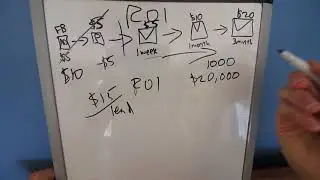 ROI
$5 $10 $20
FB
1 week 1 month 3 month
$5
$10 $5
1000
$15 ROI $20,000
lead